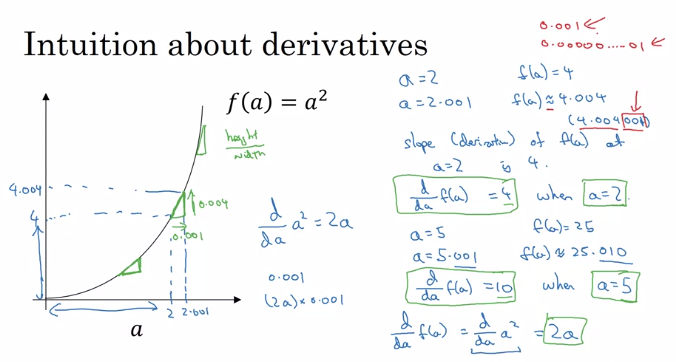 0.001 ←
0.00000.....01 ←
Intuition about derivatives
f(a) = a²
height
width
4.004
4
0.004
0.001
2
2.001
a
d/da a² = 2a
0.001
(2a) × 0.001
a = 2 f(a) = 4
a = 2.001 f(a) ≈ 4.004
(4.004001)
slope (derivative) of f(a) at
a = 2 is 4.
d/da f(a) = 4 when a = 2.
a = 5 f(a) = 25
a = 5.001 f(a) ≈ 25.010
d/da f(a) = 10 when a = 5
d/da f(a) = d/da a² = 2a